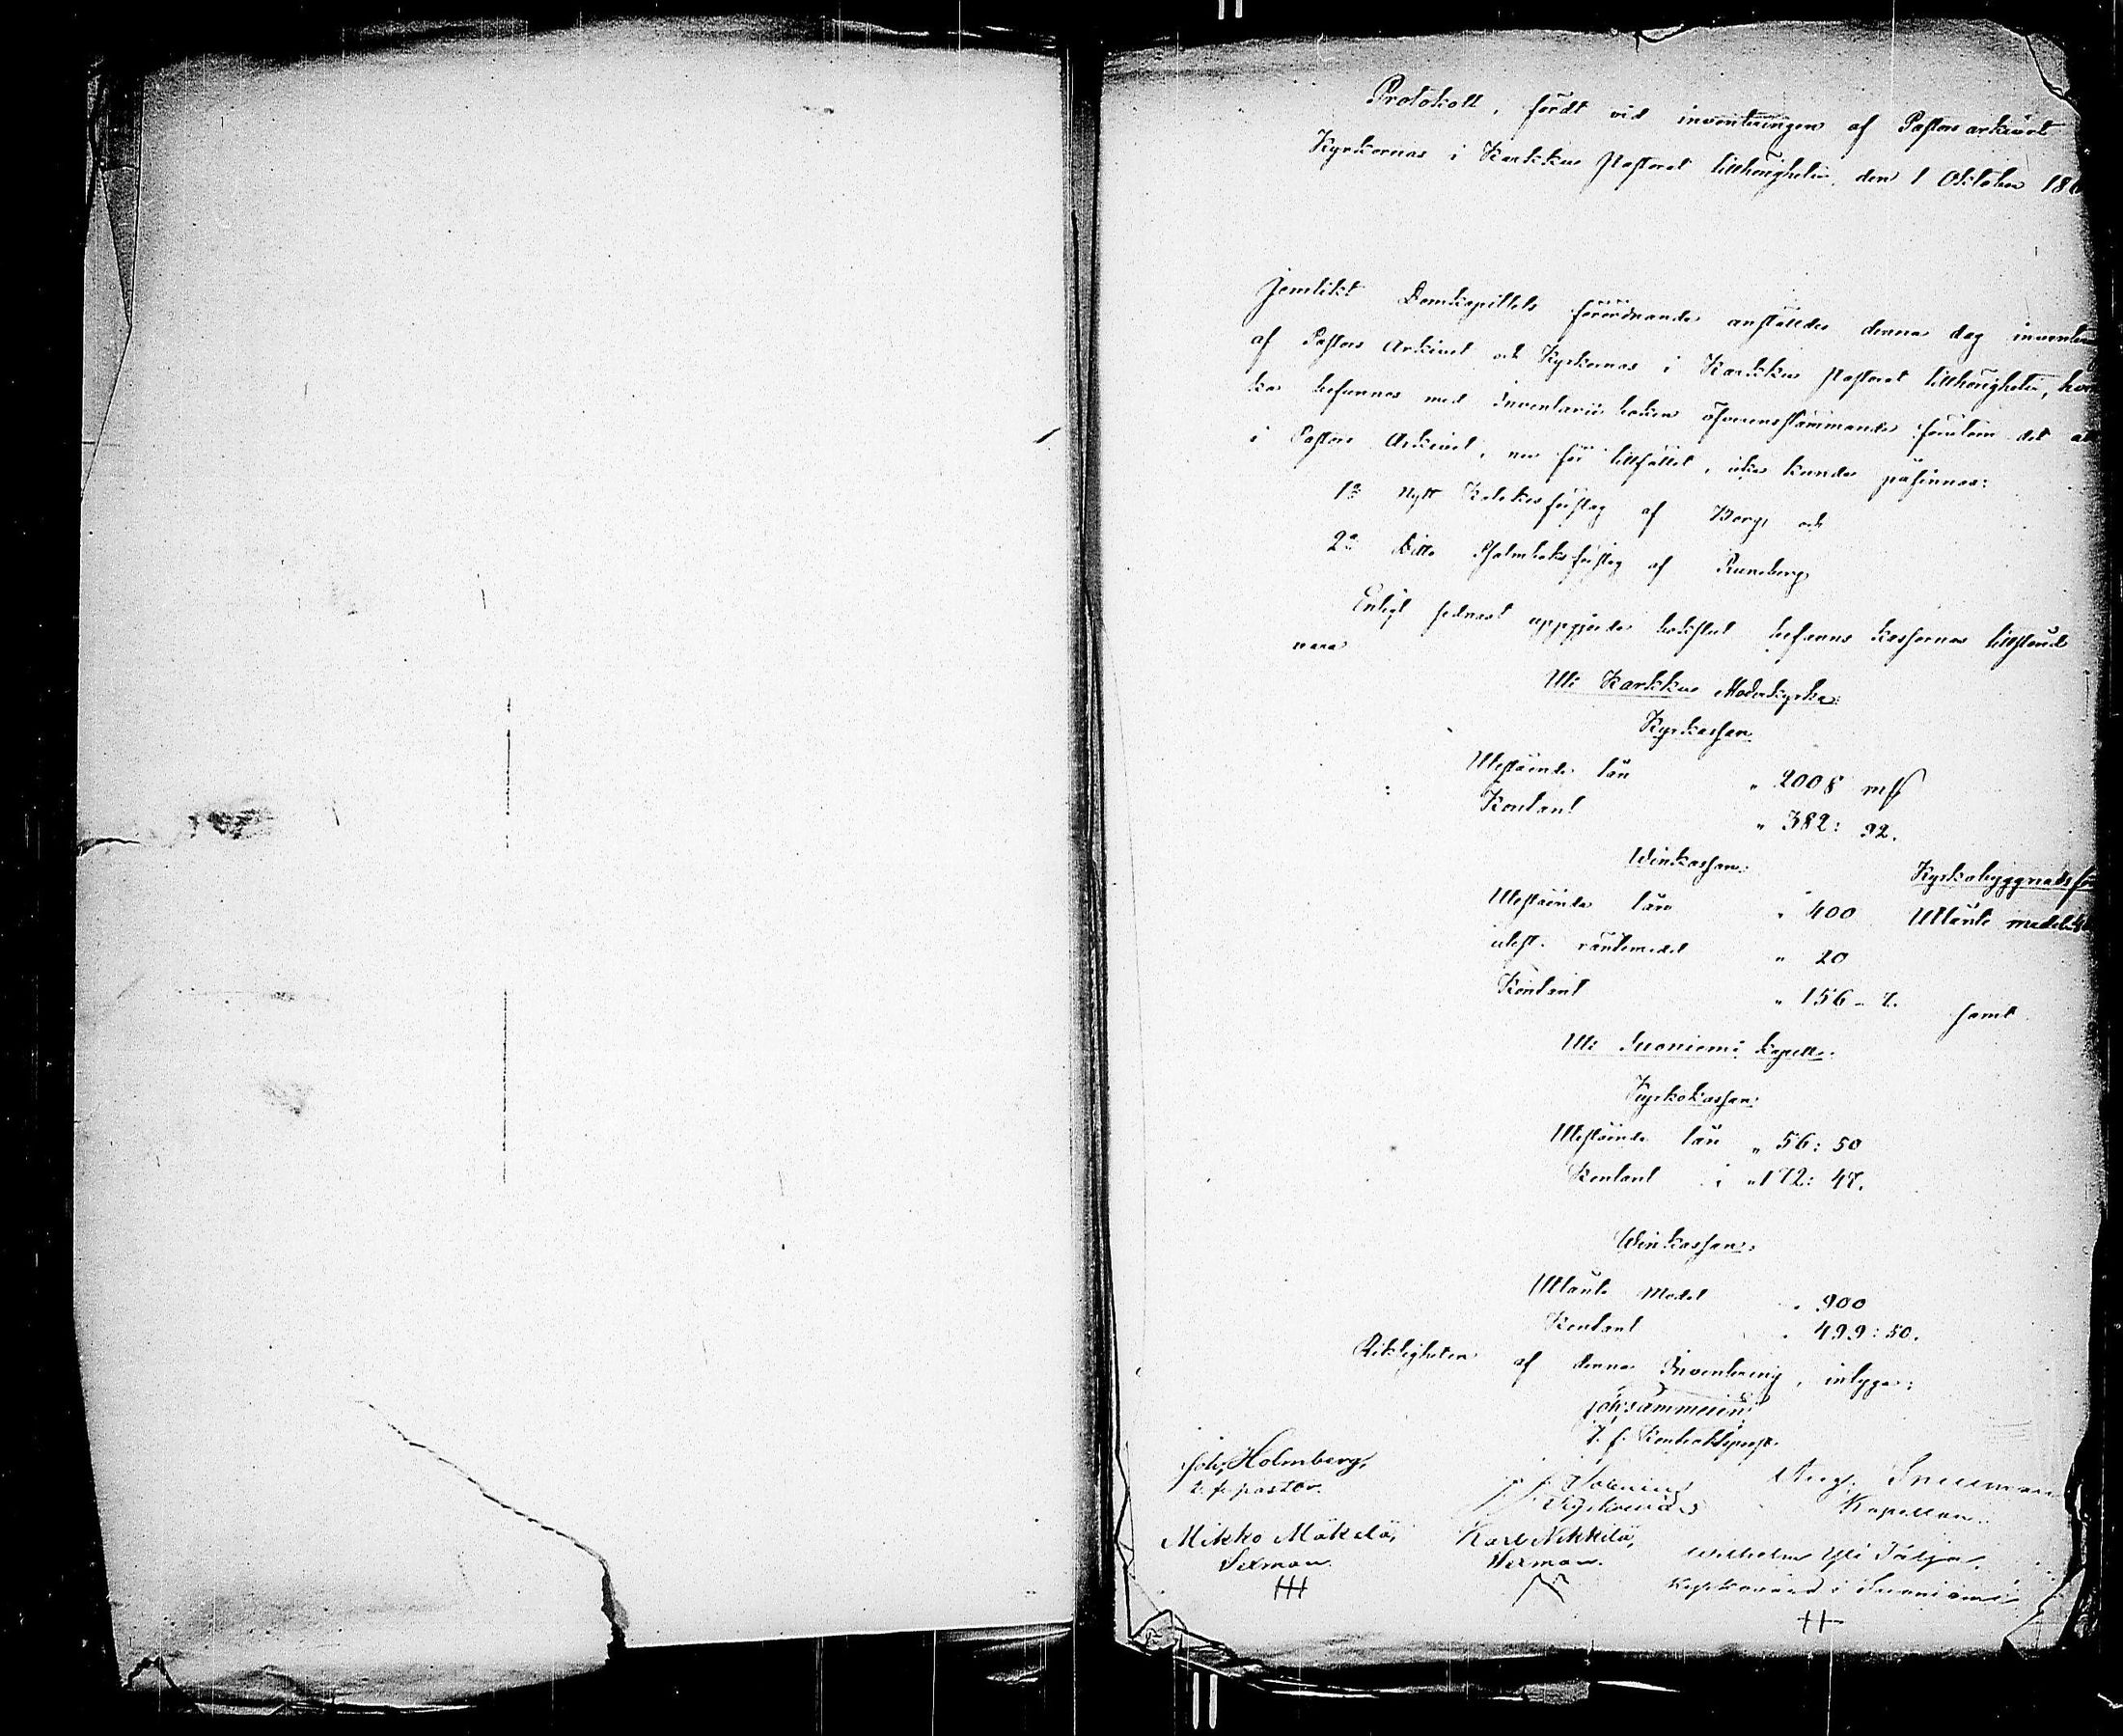 Protokoll, fördt vid inventeringen af Pastors arkivet
Kyrkornas i Karkku Pastorat tillhörigheter, den 1 Oktober 186
Jemlikt Domkapitlets förordnande anställdes denna dag inventering
af Pastors Arkivet och Kyrkornas i Karkku Pastorat tillhörigheter, hvil
ka befunnos med Inventarii boken öfverensstämmande förutom det att
i Pastors Arkivet, nu för tillfället, icke kunde påfinnas:
1:o Nytt Katekesförslag af Borg, och
2:o Ditto Psalmboksförslag af Runeberg
Enligt sednast uppgjorde bokslut befanns kassornas tillstånd
vara
Uti Karkku Moderkyrka:
Kyrkassan
Utestående lån " 2008 mk
Kontant " 382: 92.
Winkassan: Kyrkobyggnads
Utestående lån " 400 Utlånte medel
utest. räntemedel " 20
Kontant " 156 - 7. samt
Uti Suoniemi kapell:
Kyrkokassan:
Utestående lån " 56: 50
Kontant " 172: 47.
Winkassan:
Utlånte Medel " 900
Kontant " 499: 50.
Riktigheten af denna Inventering, intyga:
T. f. Kontraktsprost.
Joh. Holmberg,
t. f. pastor.
Kyrkovärd
Aug. Snellman
Kapellan.
Mikko Mäkelä,
Sexman.
Karl Nikkilä,
Sexman.
Wilhelm Yli
Kyrkovärd i Suoniemi